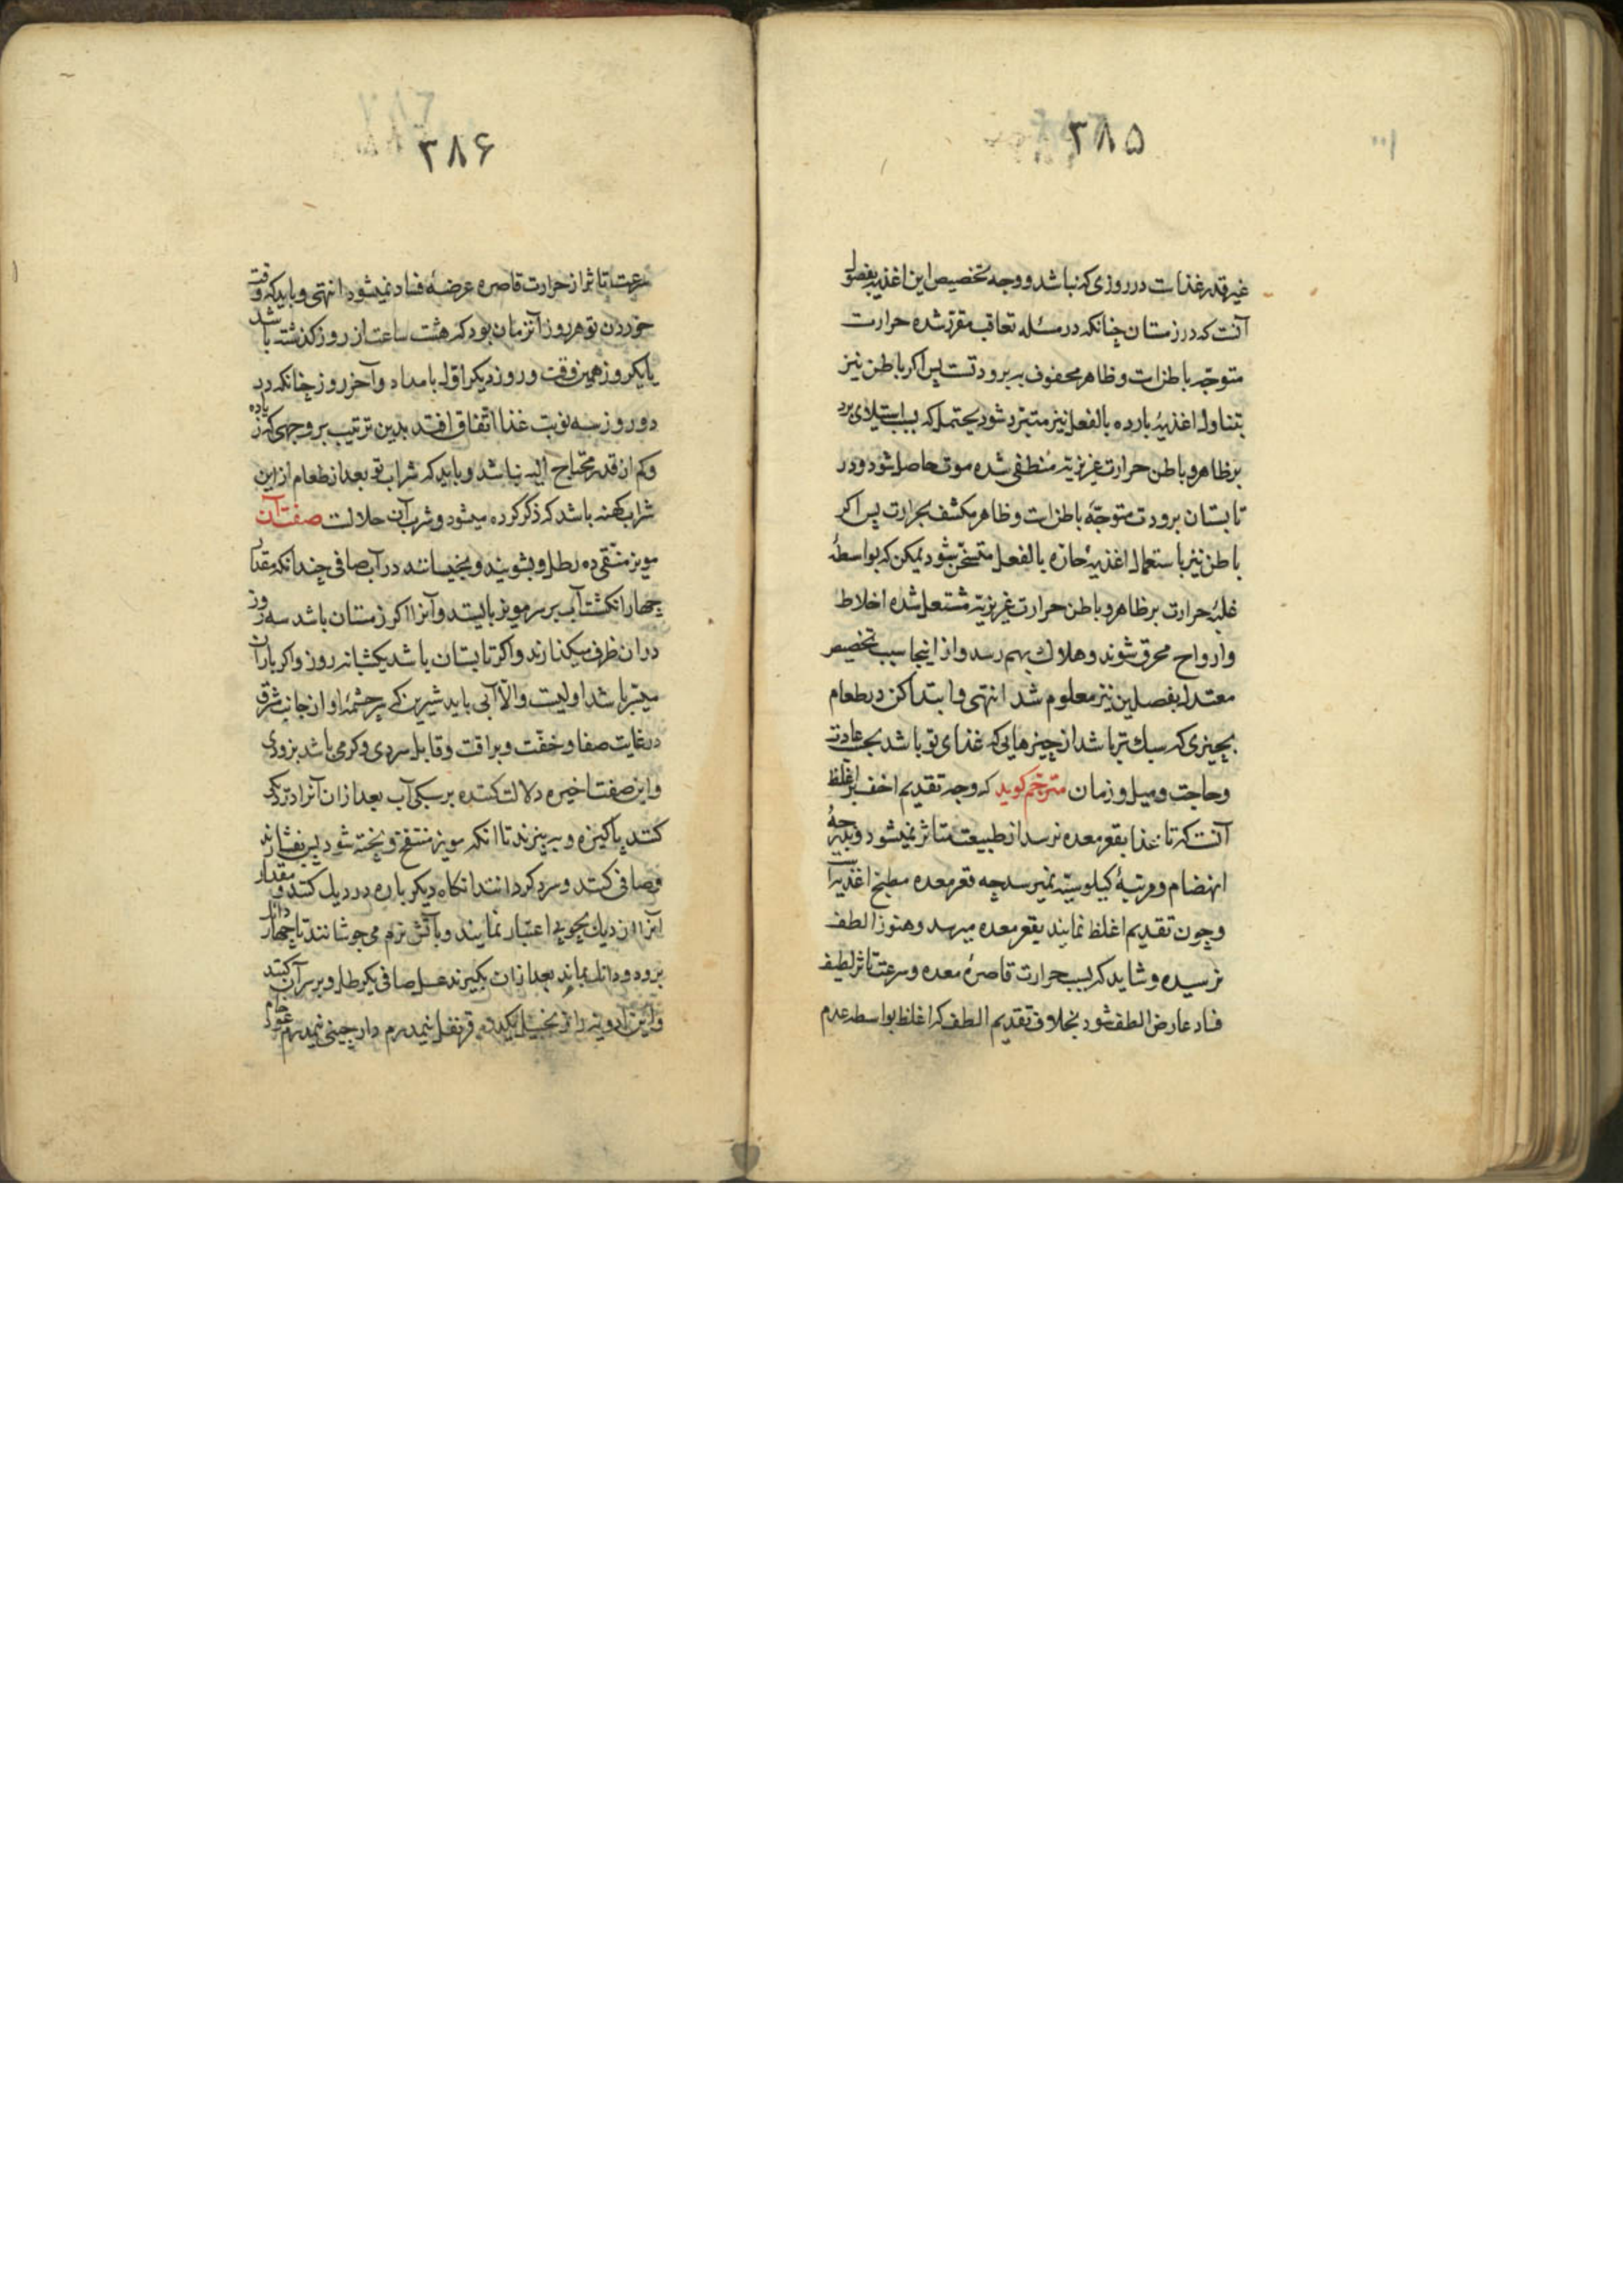 ۳۸۵
غیر قدر غذات در روزی که نباشد و وجه تخصیص این اغذیه بفصول
آنست که در زمستان چنانکه در مسئله تعاقب مقرر شده حرارت
متوجّه باطن است و ظاهر محفوف به برودتست پس اگر باطن نیز
بتناول اغذیهٔ بارده بالفعل نیز متبرّد شود یحتمل که بسبب استیلای برد
بر ظاهر و باطن حرارت غریزیّه منطفی شده موت حاصل شود و در
تابستان برودت متوجّه باطن است و ظاهر مکشف بحرارت پس اگر
باطن نیز باستعمال اغذیهٔ حارّه بالفعل متسخّن شود یمکن که بواسطهٔ
غلبهٔ حرارت بر ظاهر و باطن حرارت غریزیّه مشتعل شده اخلاط
و ارواح محرق شوند و هلاک بهم رسد و از اینجا سبب تخصیص
معتدل بفصلین نیز معلوم شد انتهی و ابتدا کن در طعام
بچیزی که سبک‌تر باشد از چیزهایی که غذای تو باشد بحسب عادت
و حاجت و میل و زمان مترجم گوید که وجه تقدیم اخف بر اغلظ
آنست که تا غذا بقعر معده نرسد از طبیعت متاثر نمیشود و بدرجهٔ
انهضام و مرتبهٔ کیلوسیّه نمیرسد چه قعر معده مطبخ اغذیه است
و چون تقدیم اغلظ نمایند بقعر معده میرسد و هنوز الطف
نرسیده و شاید که بسبب حرارت قاصرهٔ معده و سرعت تاثر لطیف
فساد عارض الطف شود بخلاف تقدیم الطف که اغلظ بواسطه عدم
۳۸۶
سرعت تاثر از حرارت قاصره عرضهٔ فساد نمیشود انتهی و باید که وقت
خوردن تو هر روز آنزمان بود که هشت ساعت از روز گذشته باشد
یا یکروز همین وقت و روز دیگر اوّل بامداد و آخر روز چنانکه در
دو روز سه نوبت غذا اتفاق افتد بدین ترتیب بر وجهی که زیاده
و کم از قدر محتاج الیه نباشد و باید که شراب تو بعد از طعام از این
شراب کهنه باشد که ذکر کرده میشود و شرب آن حلالست صفت آن
مویز منقّی ده رطل و بشویند و بخیسانند در آب صافی چندانکه مقدار
چهار انگشت آب بر سر مویز بایستد و آنرا اگر زمستان باشد سه روز
در آن ظرف میگذارند و اگر تابستان باشد یکشبانه روز و اگر باران
میسّر باشد اولیست و الّا آبی باید شیرین که سرچشمهٔ او از جانب شرق
در غایت صفا و خفّت و براقت و قابل سردی و گرمی باشد بزودی
و این صفت اخیره دلالت کننده بر سبکی آب بعد از آن آنرا در دیگ
کنند پاکیزه و بپزند تا آنکه مویز منتفخ و پخته شود پس بفشارند
و صافی کنند و سرد گردانند آنگاه دیگر باره در دیگ کنند و مقدار
آنرا از دیگ بچوبی اعتبار نمایند و بآتش نرم می جوشانند تا چهار دانگ
برود و دو دانگ بماند بعد از آن بگیرند عسل صافی یکرطل و بر سر آن کنند
و این ادویه را زنجبیل یکدرم قرنفل نیمدرم دارچینی نیمدرم عود خام